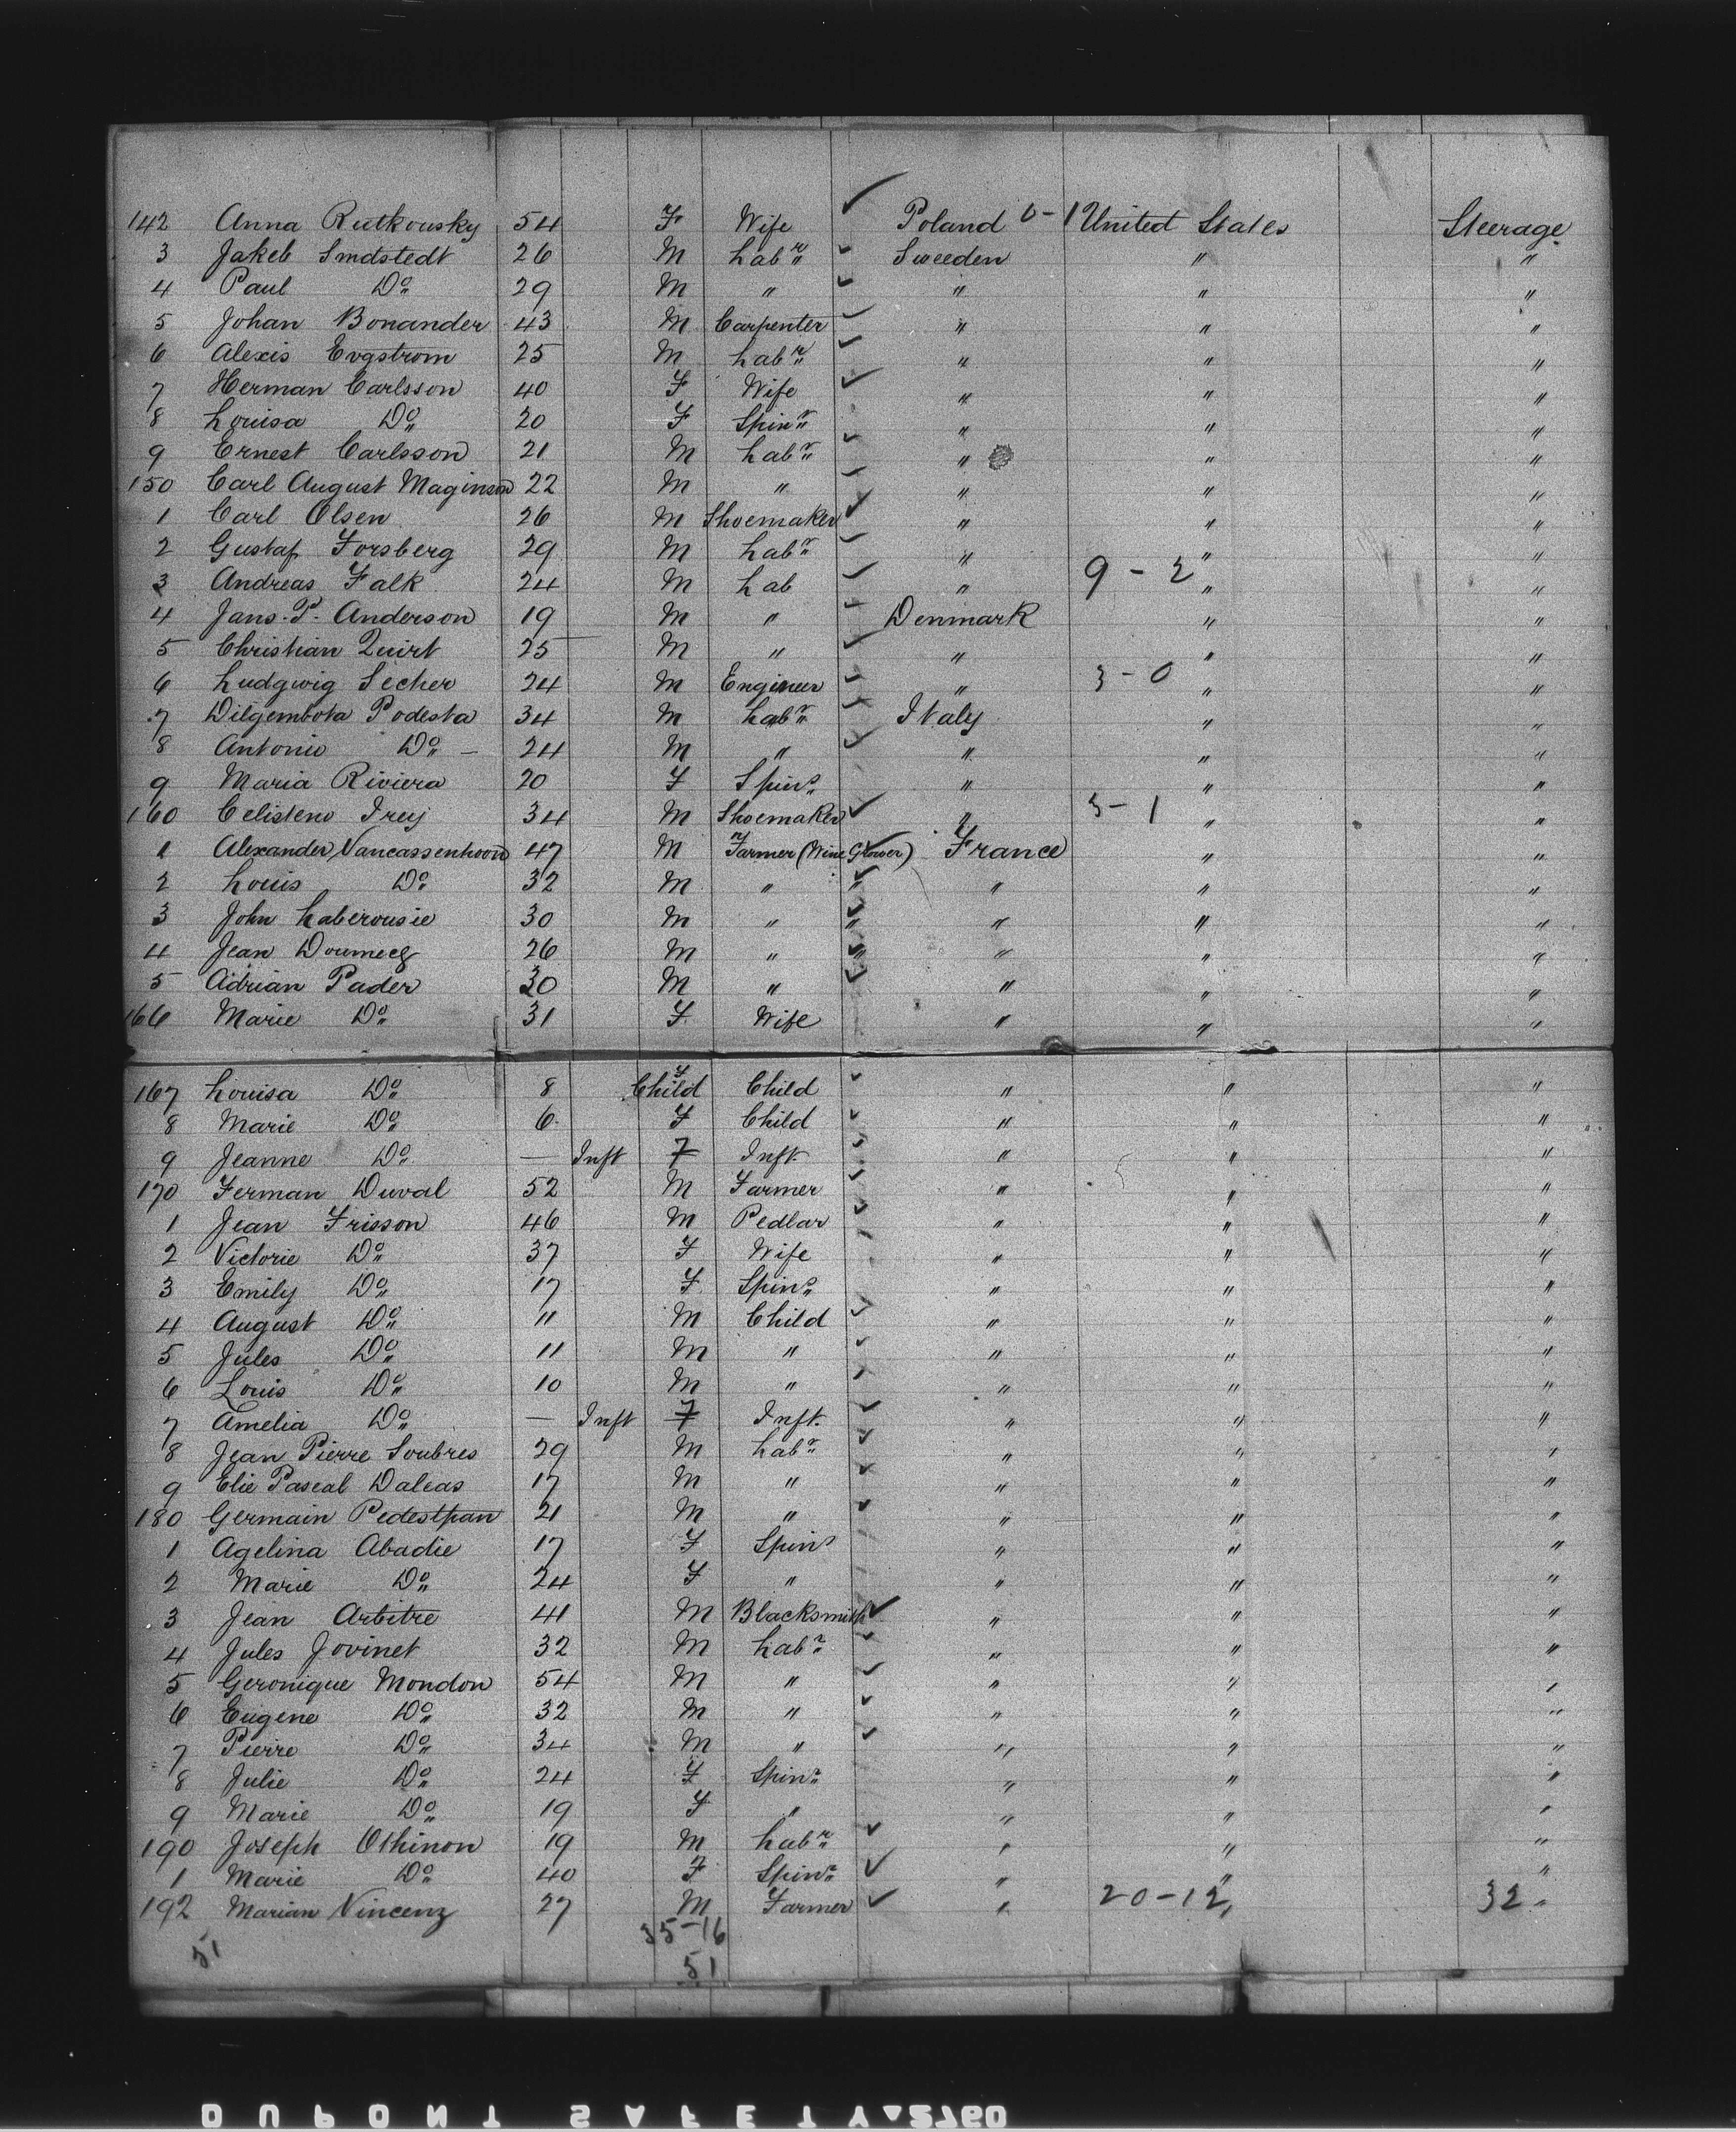 142 Anna Rutkousky 54 F Wife Poland 0-1 United States Steerage
3 Jakeb Smdstedt 26 M Labr Sweeden " "
4 Paul Do 29 M " " " "
5 Johan Bonander 43 M Carpenter " " "
6 Alexis Evgstrom 25 M Labr " " "
7 Herman Carlsson 40 F Wife " " "
8 Louisa Do 20 F Spinr " " "
9 Ernest Carlsson 21 M Labr " " "
150 Carl August Maginson 22 M " " " "
1 Carl Olsen 26 M Shoemaker " " "
2 Gustaf Forsberg 29 M Labr " " "
3 Andreas Falk 24 M Lab " 9-2 " "
4 Jans. P. Anderson 19 M " Denmark " "
5 Christian Quirt 25 M " " " "
6 Ludgwig Secher 24 M Engineer " 3-0 " "
7 Dilgembota Podesta 34 M Labr Italy " "
8 Antonio Do 24 M " " " "
9 Maria Riviera 20 F Spinr " " "
160 Celisteno Frey 34 M Shoemaker " 3-1 " "
1 Alexander Vancassenhoon 47 M Farmer (Wine Grower) France " "
2 Louis Do 32 M " " " " "
3 John Laberousie 30 M " " " " "
4 Jean Doumecq 26 M " " " " "
5 Adrian Pader 30 M " " " "
166 Marie Do 31 F Wife " " "
167 Louisa Do 8 F Child Child " " "
8 Marie Do 6 F Child " " "
9 Jeanne Do — Inft F Inft " " "
170 Ferman Duval 52 M Farmer " " "
1 Jean Frisson 46 M Pedlar " " "
2 Victorie Do 37 F Wife " " "
3 Emily Do 17 F Spinr " " "
4 August Do 11 M Child " " "
5 Jules Do 11 M " " " "
6 Louis Do 10 M " " " "
7 Amelia Do — Inft F Inft. " " "
8 Jean Pierre Soubres 29 M Labr " " "
9 Elie Pascal Daleas 17 M " " " "
180 Germain Pedestpan 21 M " " " "
1 Agelina Abadie 17 F Spinr " " "
2 Marie Do 24 F " " " "
3 Jean Arbitre 41 M Blacksmith " " "
4 Jules Jovinet 32 M Labr " " "
5 Geronique Mondon 54 M " " " "
6 Eugene Do 32 M " " " "
7 Pierre Do 34 M " " " "
8 Julie Do 24 F Spinr " " "
9 Marie Do 19 F " " " "
190 Joseph Othinon 19 M Labr " " "
1 Marie Do 40 F Spinr " " "
192 Marian Vincenz 27 M Farmer " 20-12 " 32 "
51 35-16
51
DUPONT SAFETY 2760